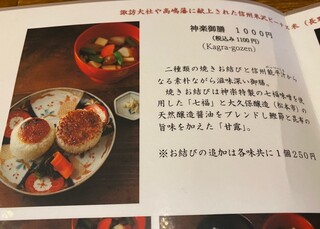 諏訪大社や高嶋藩に献上された信州米沢
神楽御膳 1000円
(税込み 1100円)
(Kagra-gozen)
二種類の焼きお結びと信州
なる素朴ながら滋味深い御膳。
焼きお結びは神楽特製の七福味噌を使
用した「七福」と大久保醸造(松本市)の
天然醸造醤油をブレンドし鰹節と昆布の
旨味を加えた「甘露」。
※お結びの追加は各味共に1個250円